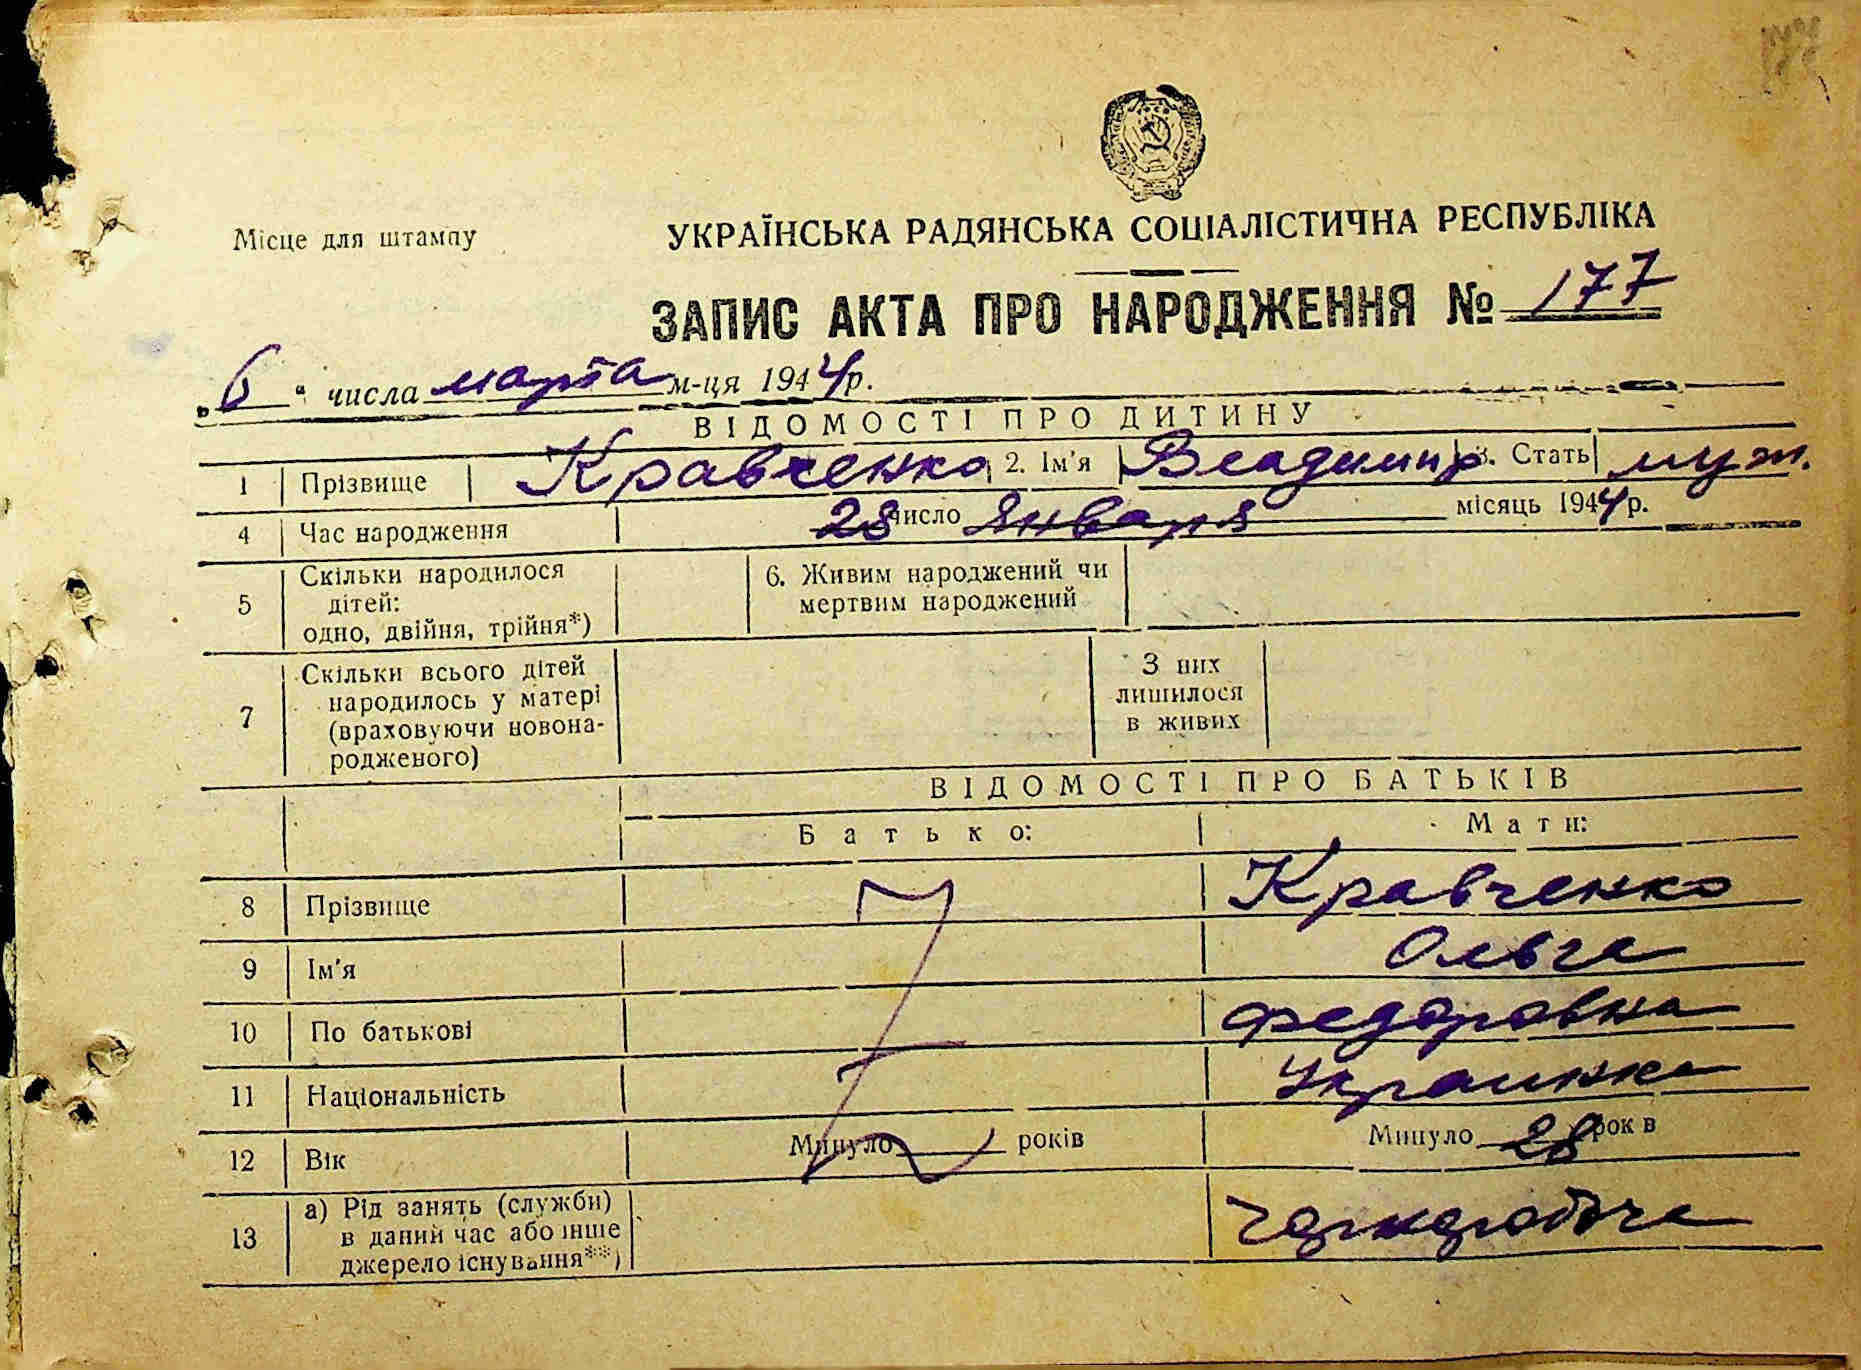 Місце для штампу
УКРАЇНСЬКА РАДЯНСЬКА СОЦІАЛІСТИЧНА РЕСПУБЛІКА
ЗАПИС АКТА ПРО НАРОДЖЕННЯ № 177
„6“ числа марта м-ця 1944р.
ВІДОМОСТІ ПРО ДИТИНУ
1 Прізвище Кравченко 2. Ім'я Владимир 3. Стать муж.
4 Час народження 28 число января місяць 1944р.
5 Скільки народилося
дітей:
одно, двійня, трійня*)
6. Живим народжений чи
мертвим народжений
7 Скільки всього дітей
народилось у матері
(враховуючи новона-
родженого)
З них
лишилося
в живих
ВІДОМОСТІ ПРО БАТЬКІВ
Батько: Мати:
8 Прізвище Кравченко
9 Ім'я Ольга
10 По батькові Федоровна
11 Національність Украинка
12 Вік Минуло років Минуло 28 рок в
13 а) Рід занять (служби)
в даний час або інше
джерело існування**)
Чорноробоча